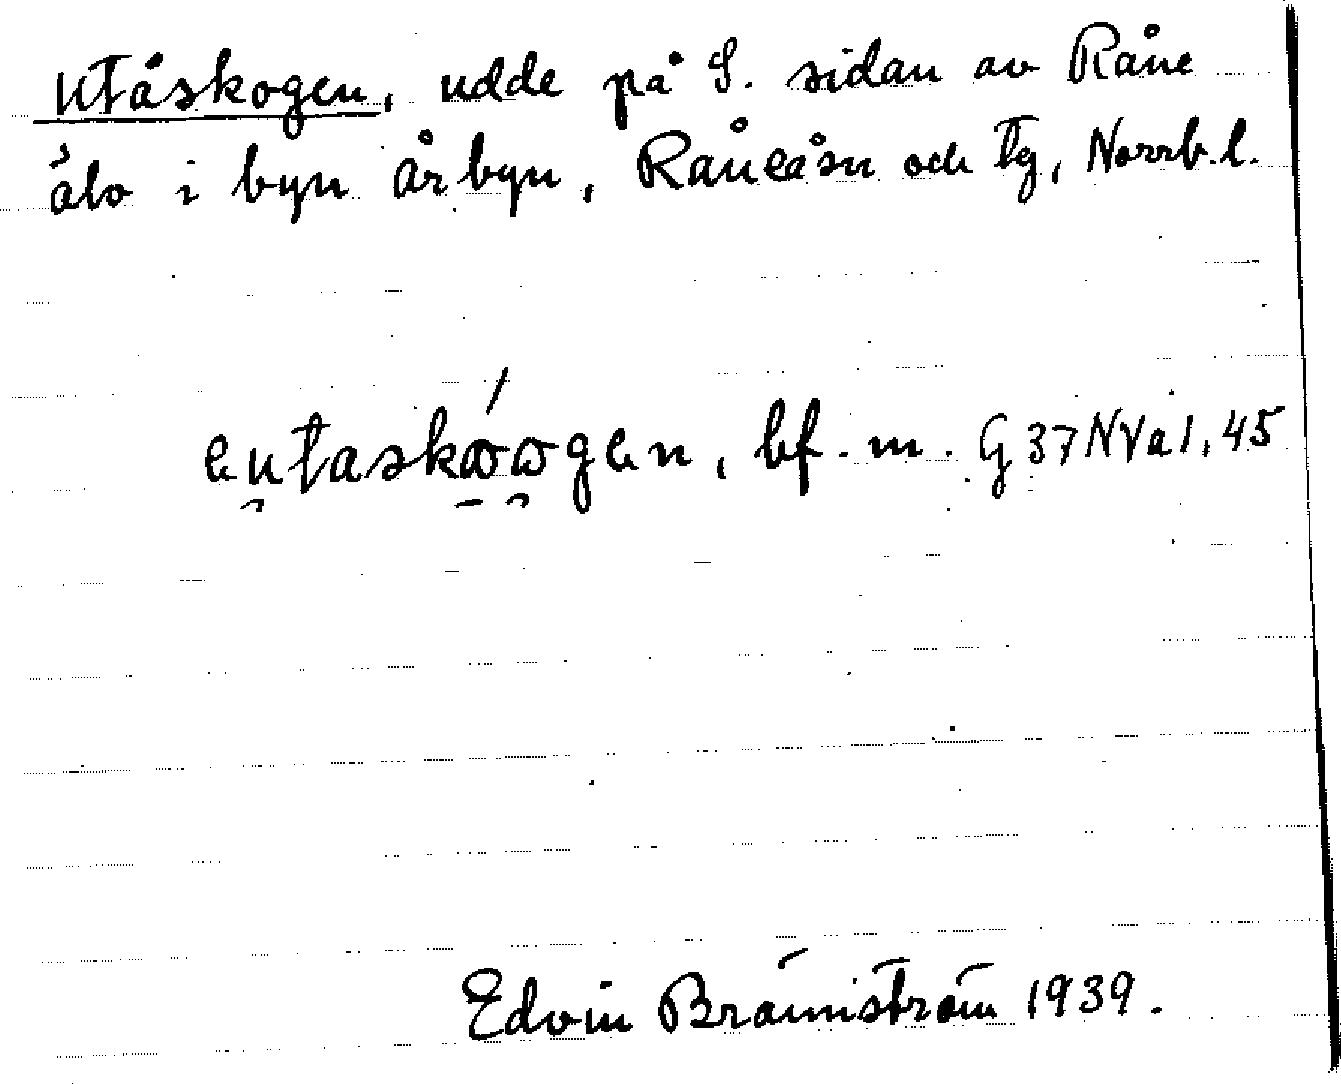 Utåskogen, udde på S. sidan av Råne
älv i byn Årbyn, Råneå sn och tg, Norrb. l.
eutaskóogen, bf. m. G 37 NVa1, 45
Edvin Brännström 1939.